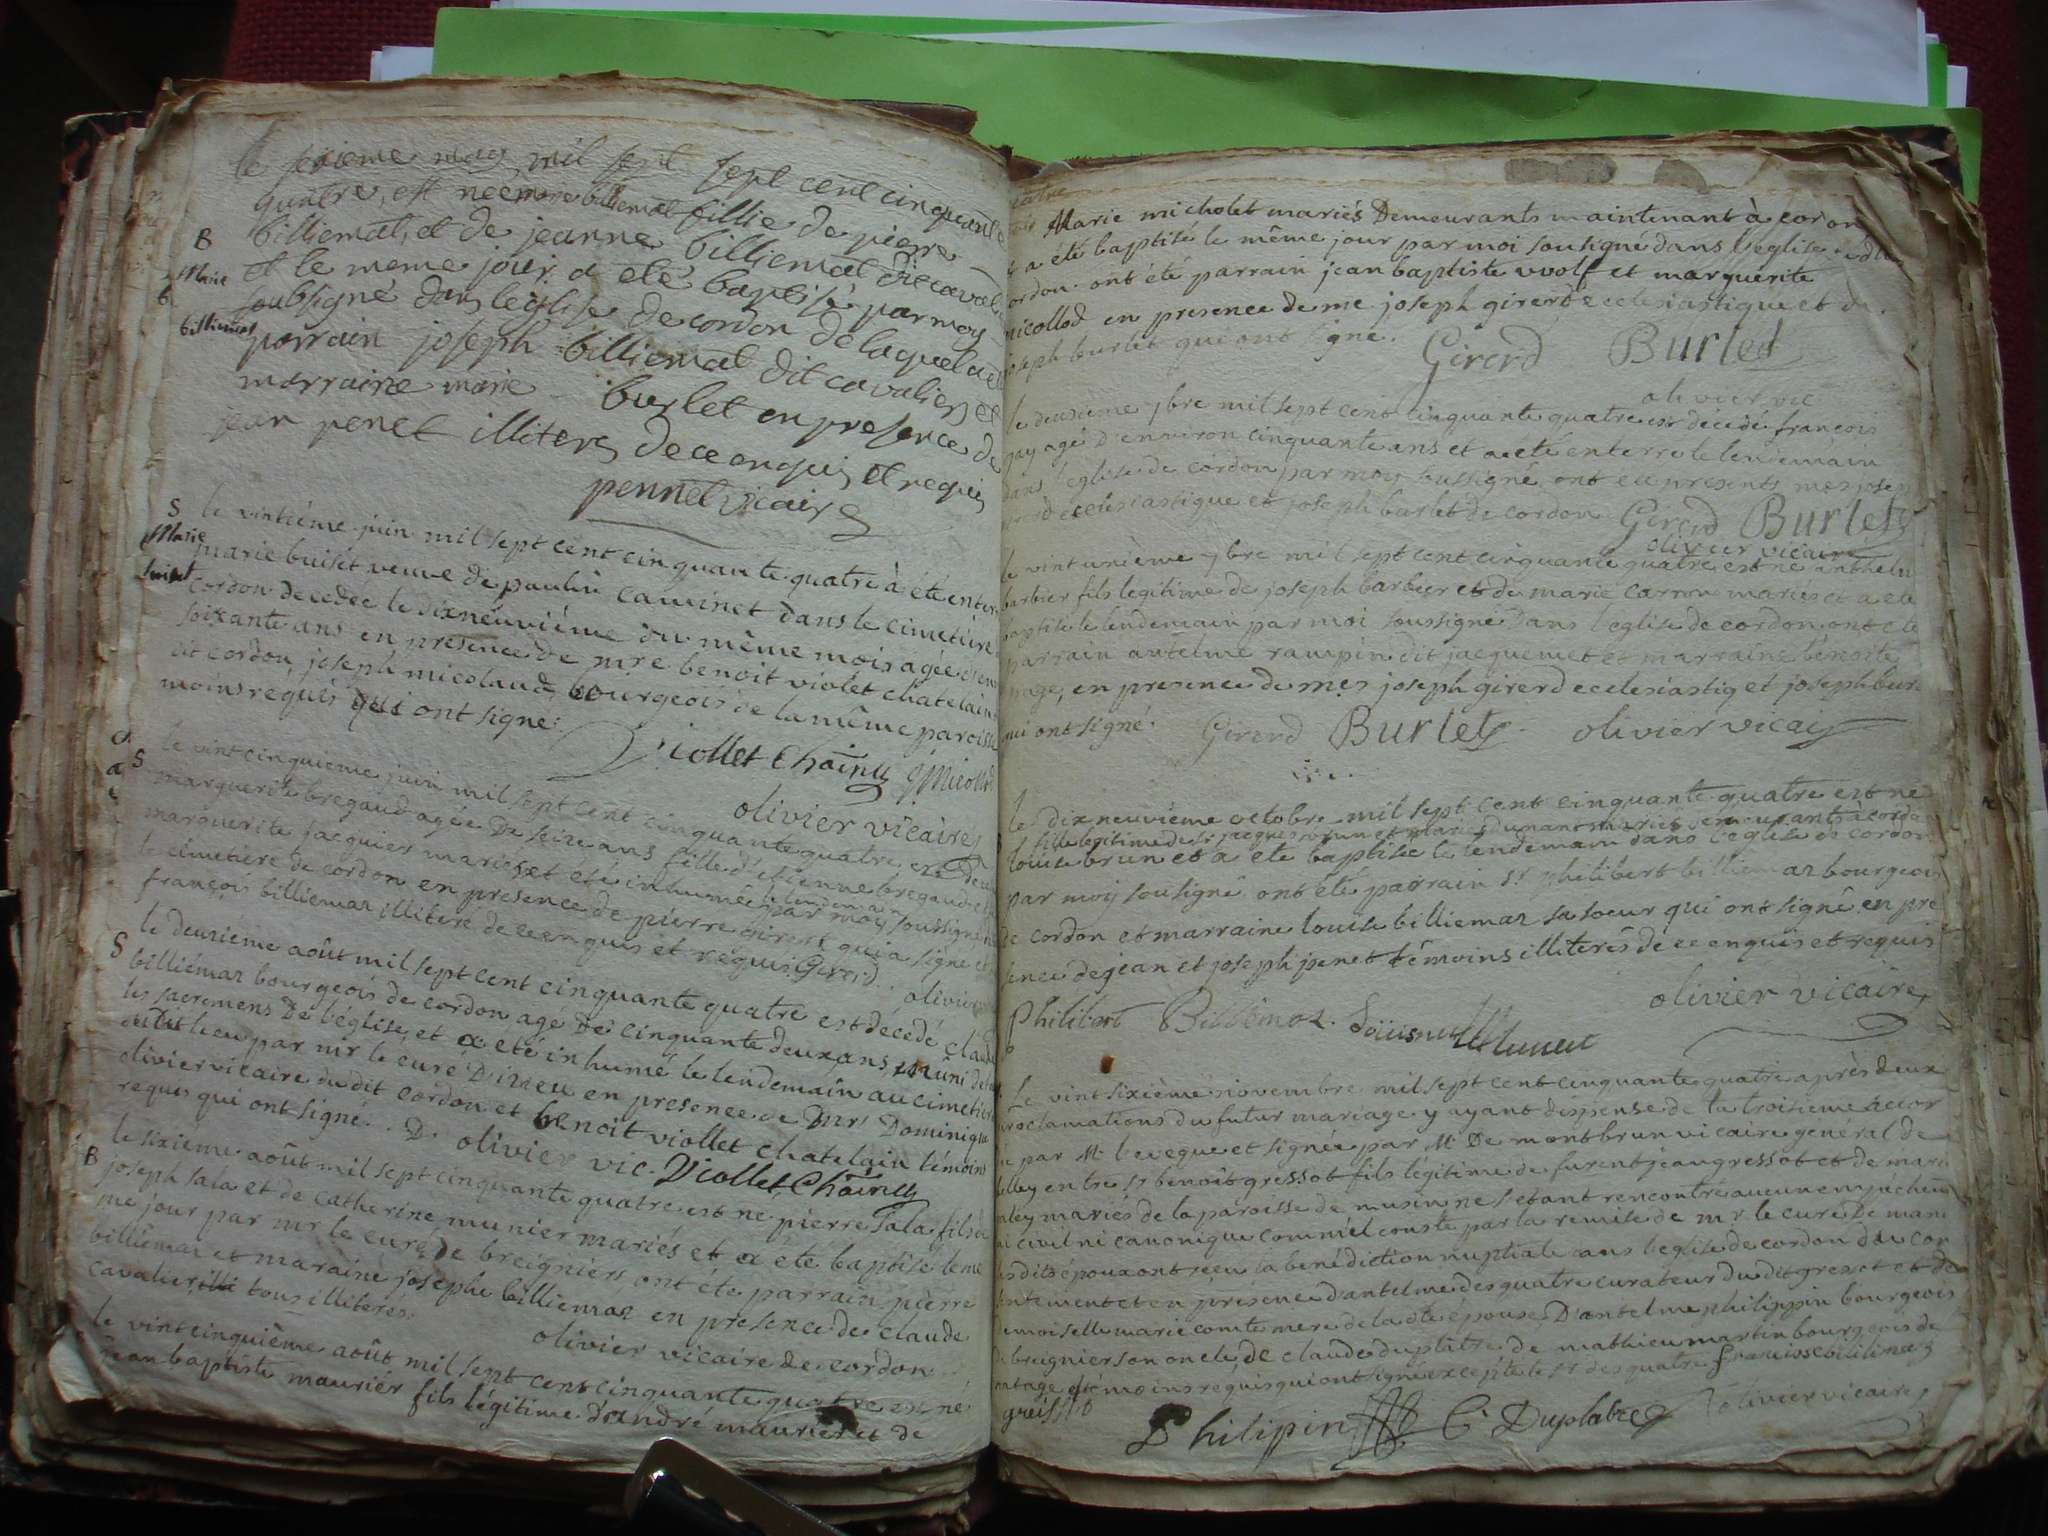 le seizieme may mil sept sept cent cinquante
quatre, est nee marie billiemat fillie de pierre
B
billiemat, et de jeanne billiemat dit caval
Marie
et le meme jour a eté baptisé par moy
soubsigné dans leglise de cordon de laquela eté
billiemat
parrain joseph billiemat dit cavalier et
marraine marie burlet en presence de
jean penet illiteres de ce enquis et requis
pennet vicaire
S
le vintiéme juin mil sept cent cinquante quatre à été enter
Marie
marie buiset veuve de paulin cauvinet dans le cimetiere
buiset
cordon decedée le dixneuviéme du même mois agée d'env
soixante ans en presence de mre benoit violet chatelain
dit cordon joseph micolaud bourgeois de la même paroisse
moins requis qui ont signe:
Viollet Chãinu J Micolld
olivier vicaire
S
le vint cinquieme juin mil sept cent cinquante quatre est dece
marguerite bregaud agée de seize ans fille d'etienne bregaud et
marguerite jacquier mariés et été inhumée le lendemain par moy soussigné
le cimetiere de cordon en presence de pierre girerd qui a signé et
françois billiemaz illiteré de ce enquis et requis Girerd . olivier
S
le deuxième août mil sept cent cinquante quatre est décedé claude
billiémaz bourgeois de cordon agé de cinquante deux ans muni de
les sacremens de l'église et a été inhumé le lendemain au cimetier
dudit lieu par mr le curé d'izieu en presence de Mrs Dominique
olivier vicaire du dit cordon et benoit viollet chatelain témoins
requis qui ont signé. D. olivier vic. Viollet Chãinu
B
le sixieme août mil sept cinquante quatre est ne pierre sala fils à
joseph sala et de catherine munier mariés et a été baptisé le me
me jour par mr le curé de breigniers ont été parrain pierre
billiémaz et maraine josephe billiemaz en presence de claude
cavalier tous illiterés:
olivier vicaire de cordon
le vintcinquiême août mil sept cent cinquante quatre est né
jean baptiste mauriér fils légitime d'andré maurier et de
Marie micholet mariés Demeurants maintenant à cordon
et a été baptisé le même jour par moi sousigné dans l'eglise
cordon ont été parrain jean baptiste woolf et marguérite
nicollod en presence de me joseph girerd ecclesiastique et de
joseph burlet qui ont signe.
Girerd Burlet
olivier vic
le deuxième 7bre mil sept cent cinquante quatre est décedé françois
gay agé d'environ cinquante ans et a été enterré le lendemain
dans l'eglise de cordon par moy sousigné ont été présents mes joseph
girerd ecclesiastique et joseph burlet de cordon Girerd Burlet
olivier vicaire
le vint unième 7bre mil sept cent cinquante quatre est né anthelm
barbier fils legitime de joseph barbier et de marie carron mariés et a été
baptisé le lendemain par moi soussigné dans l'eglise de cordon ont été
parrain antelme rampin dit jacquemet et marraine benoite
page, en presence de mes joseph girerd ecclesiastiq et joseph bur
qui ont signé. Girerd Burlet olivier vicair
le dix neuviéme octobre mil sept cent cinquante quatre est né
fille legitime de sr jacques brun et marie dunant mariés demeurants à cordon
louise brun et a été baptisée le lendemain dans l'église de cordon
par moy sousigné ont été parrain sr philibert billiemaz bourgeois
de cordon et marraine louise billiemaz sa soeur qui ont signé en pre
sence de jean et joseph penet témoins illiterés de ce enquis et requis
olivier vicaire
Philibert Billiémaz.
le vint sixième novembre mil sept cent cinquante quatre après deux
proclamations du futur mariage y ayant dispense de la troisieme accor
dée par Mr l'eveque et signée par Mr De montbrun vicaire genéral de
belley entre sr benoit gressot fils légitime de furent jean gressot et de marie
mariés de la paroisse de musin ne s'etant rencontré aucun empéchem
ni civil ni canonique comm'il conste par la remise de mr le curé de
les dits époux ont reçu la benédiction nuptiale dans l'eglise de cordon du con
sentement et en présence d'antelme desquatre curateur du dit gressot et de
demoiselle marie comte mere de la dte épouse, d'antelme philippin bourgeois
de breignier son oncle, de claude duplâtre de mathieu martin bourgeois de
témoins requis qui ont signé excepté le sr desquatre francoise billimaz
greissot
Philipin C Duplatre olivier vicaire